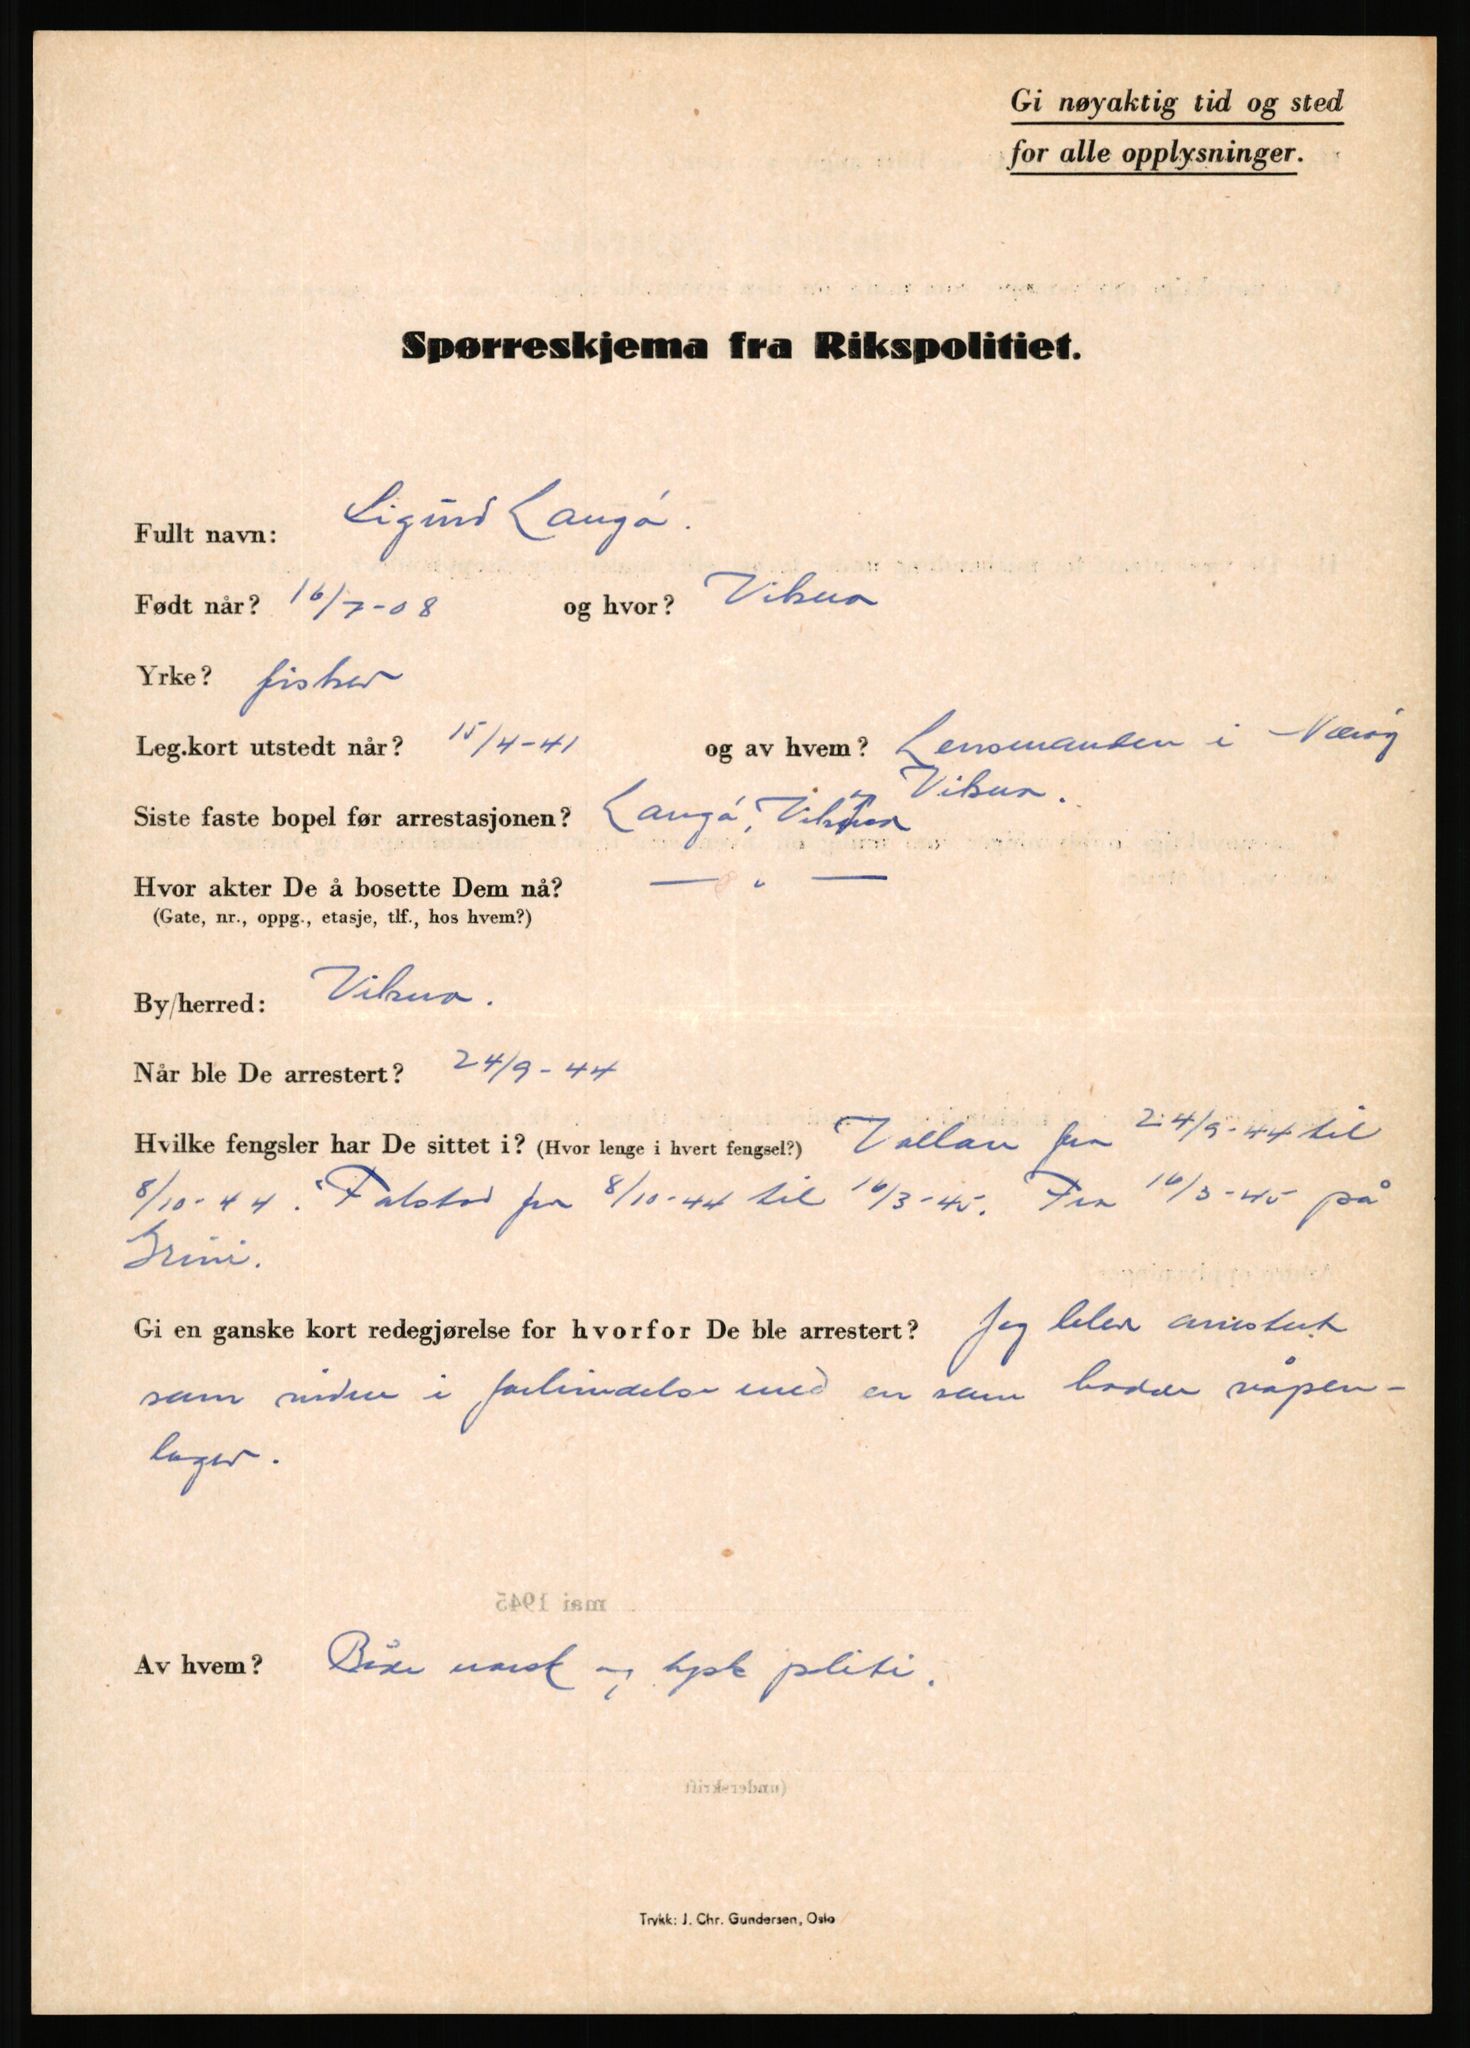 Gi nøyaktig tid og sted
for alle opplysninger.
Spørreskjema fra Rikspolitiet.
Fullt navn: Sigurd Langö.
Født når? 16/7-08 og hvor? Vikna
Yrke? fisker
Leg.kort utstedt når? 15/4-41 og av hvem? Lensmanden i Nærøy
Siste faste bopel før arrestasjonen? Langö, Vikna Vikna.
Hvor akter De å bosette Dem nå? — " —
(Gate, nr., oppg., etasje, tlf., hos hvem?)
By/herred: Vikna.
Når ble De arrestert? 24/9-44
Hvilke fengsler har De sittet i? (Hvor lenge i hvert fengsel?) Vollan fra 24/9-44 til
8/10-44. Falstad fra 8/10-44 til 16/3-45. Fra 16/3-45 på
Grini.
Gi en ganske kort redegjørelse for hvorfor De ble arrestert? Jeg blev arrestert
som vidne i forbindelse med en som hadde våpen-
lager.
mai 1945
Av hvem? Både norsk og tysk politi.
(underskrift
Trykk: J. Chr. Gundersen, Oslo